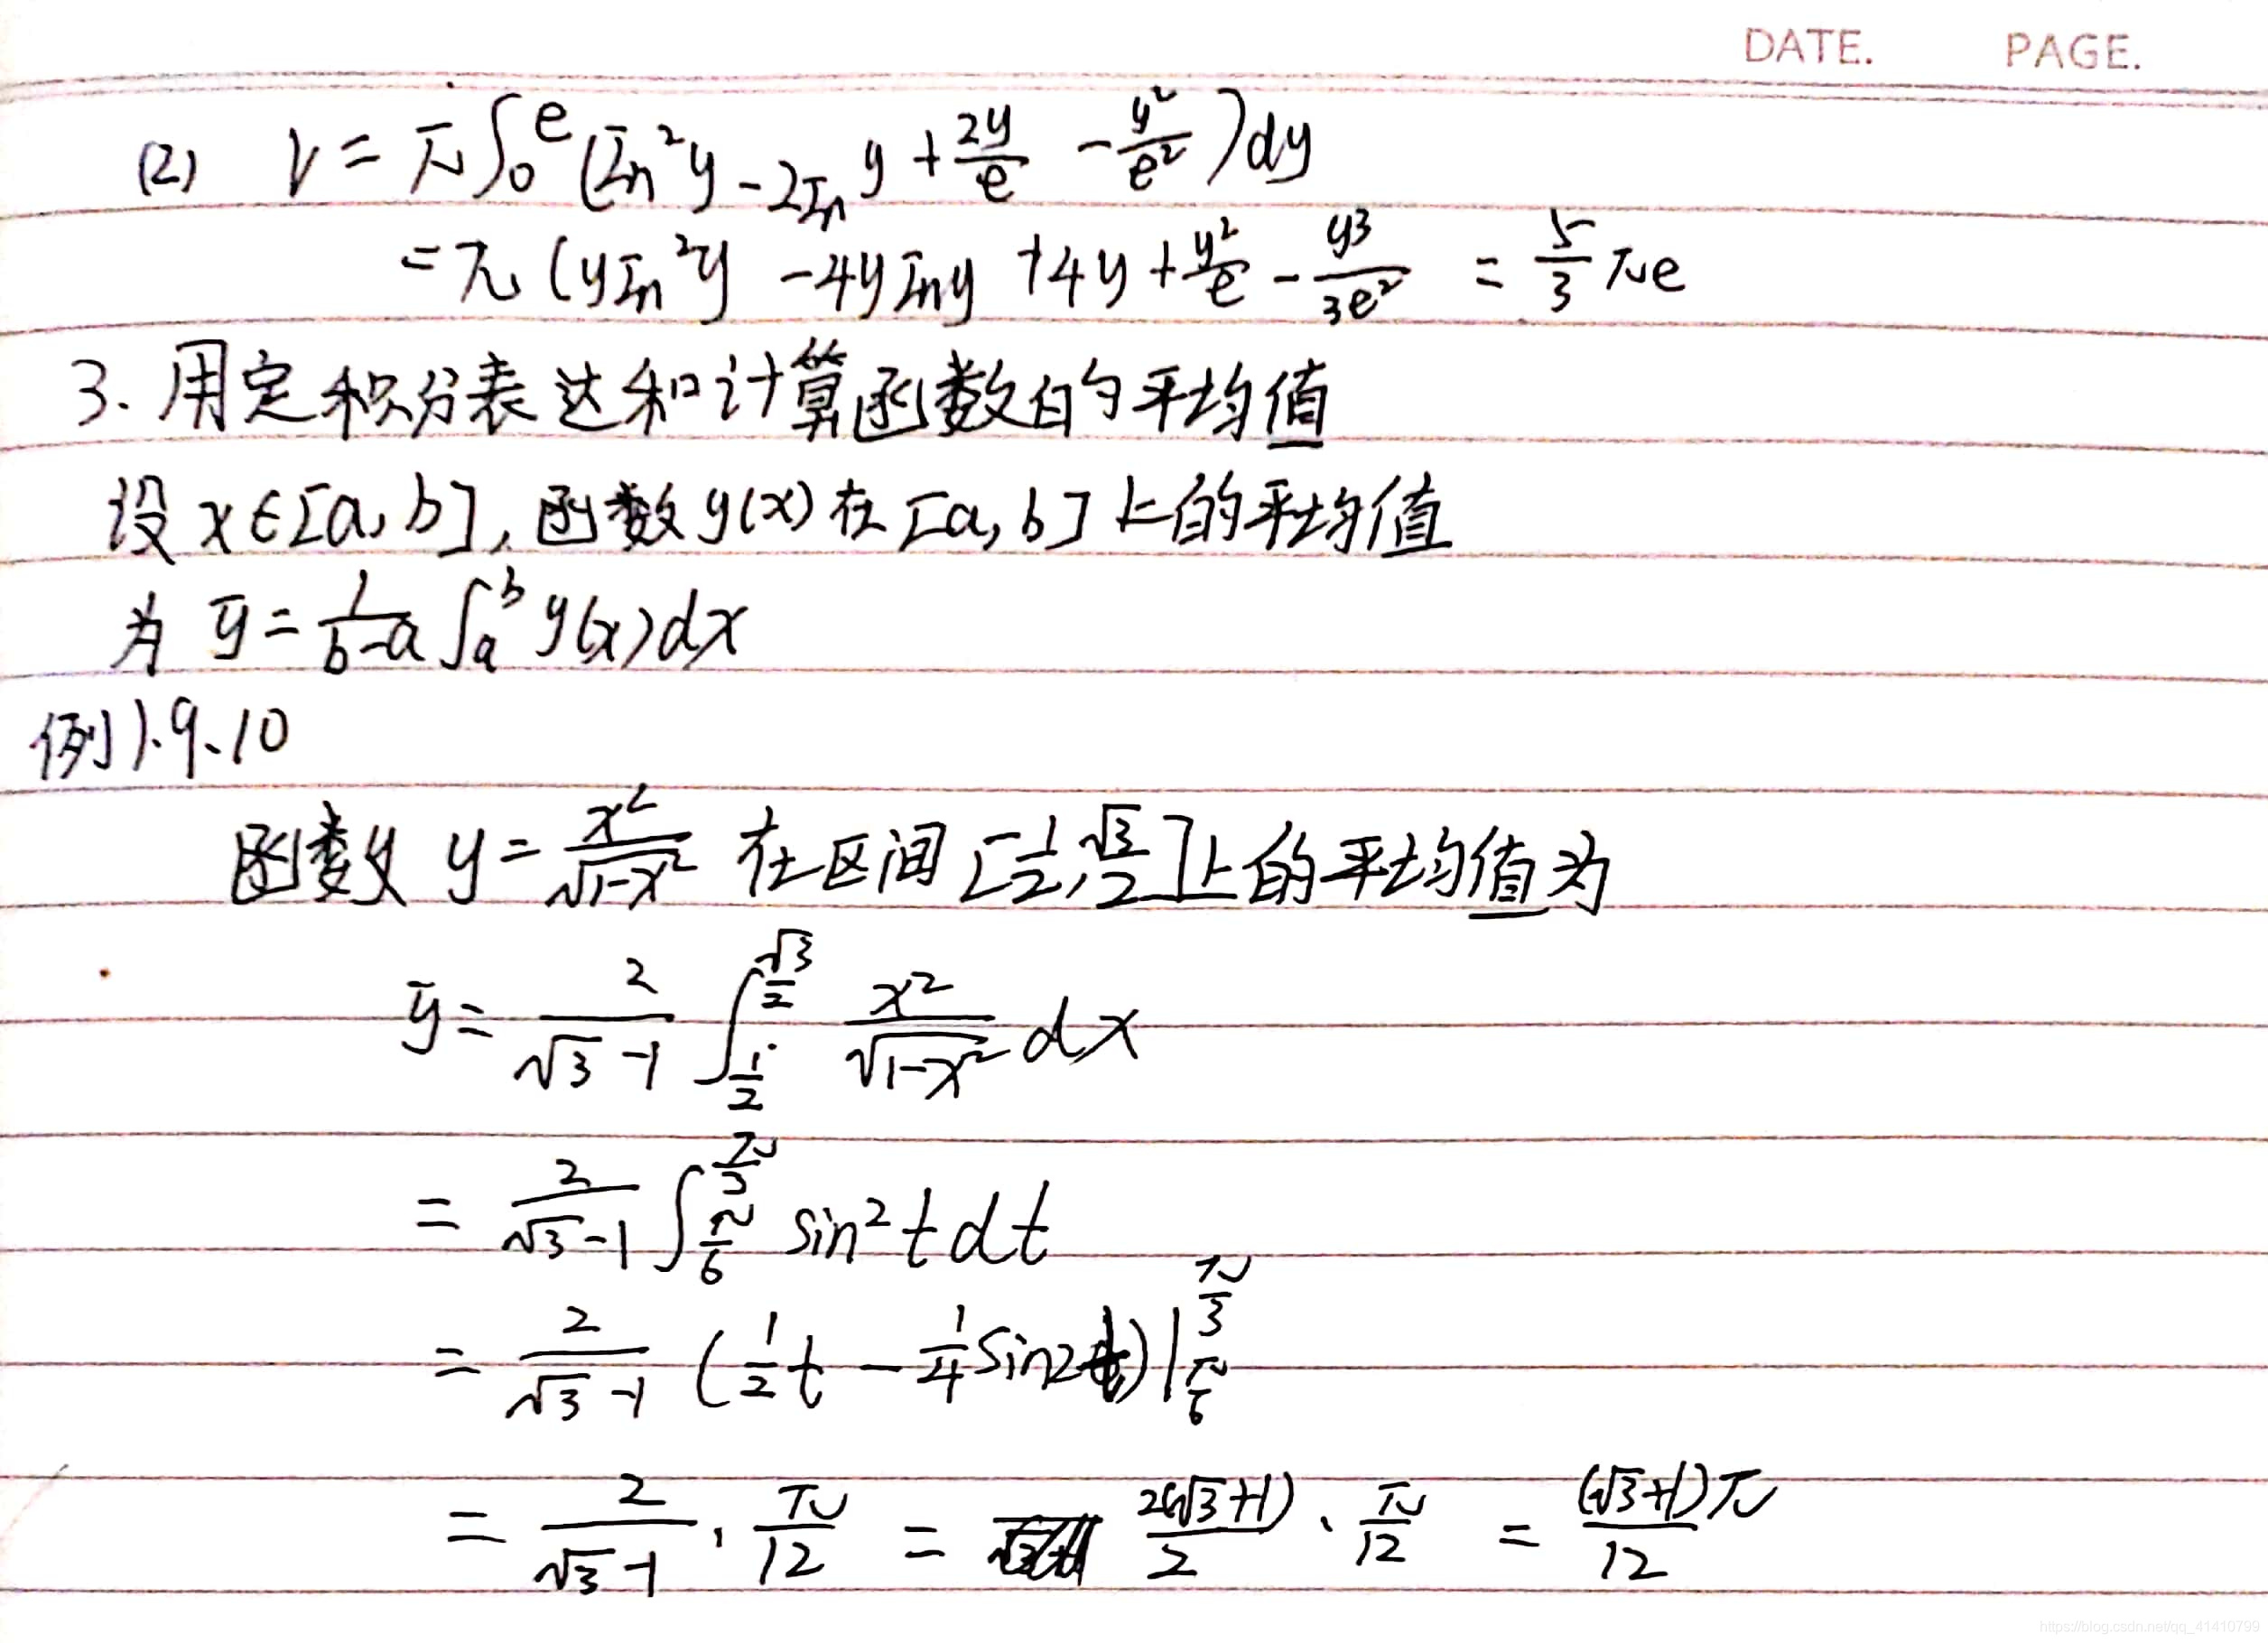 DATE. PAGE.
(2) V = π∫₀ᵉ(ln²y - 2ln y + 2y/e - y²/e²)dy
= π(yln²y - 4ylny + 4y + y²/e - y³/3e² = 5/3 πe
3. 用定积分表达和计算函数的平均值
设 x∈[a, b], 函数 y(x) 在 [a, b] 上的平均值
为 ȳ = 1/(b-a) ∫ₐᵇ y(x)dx
例1.9.10
函数 y = x²/√(1-x²) 在区间 [1/2, √3/2] 上的平均值为
ȳ = 2/(√3-1) ∫_{1/2}^{√3/2} x²/√(1-x²) dx
= 2/(√3-1) ∫_{π/6}^{π/3} sin²t dt
= 2/(√3-1) (1/2 t - 1/4 sin2t)|_{π/6}^{π/3}
= 2/(√3-1) · π/12 = 2(√3+1)/2 · π/12 = (√3+1)π/12
https://blog.csdn.net/qq_41410799